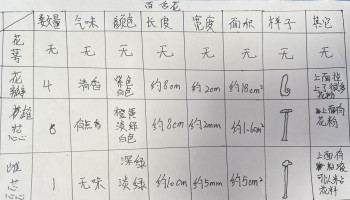 百合花
数量 气味 颜色 长度 宽度 面积 样子 其它
花萼 无 无 无 无 无 无 无 无
花瓣 4 清香 紫色 白色 约8cm 约2cm 约18cm²
雄蕊 8 橙黄 淡绿 白色 约8cm 约2mm 约1.6cm² 上面有花粉
雌蕊 1 无味 深绿 淡绿 约10cm 约5mm 约5cm² 上面有